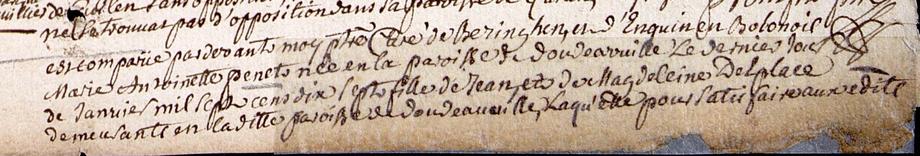 ne se trouvat pas d'opposition dans la paroisse de
est comparie pardevant moy ptre Curé de Beringhen et d'Enquin en Bolonois
Marie Antoinette penet née en la paroisse de doudeauville Le dernier jour
de Janvier mil sept cens dix sept fille de Jean, et de Magdeleine Delplace
demeurante en la ditte paroisse de doudeauville, Laquelle pour satisfaire aux edits